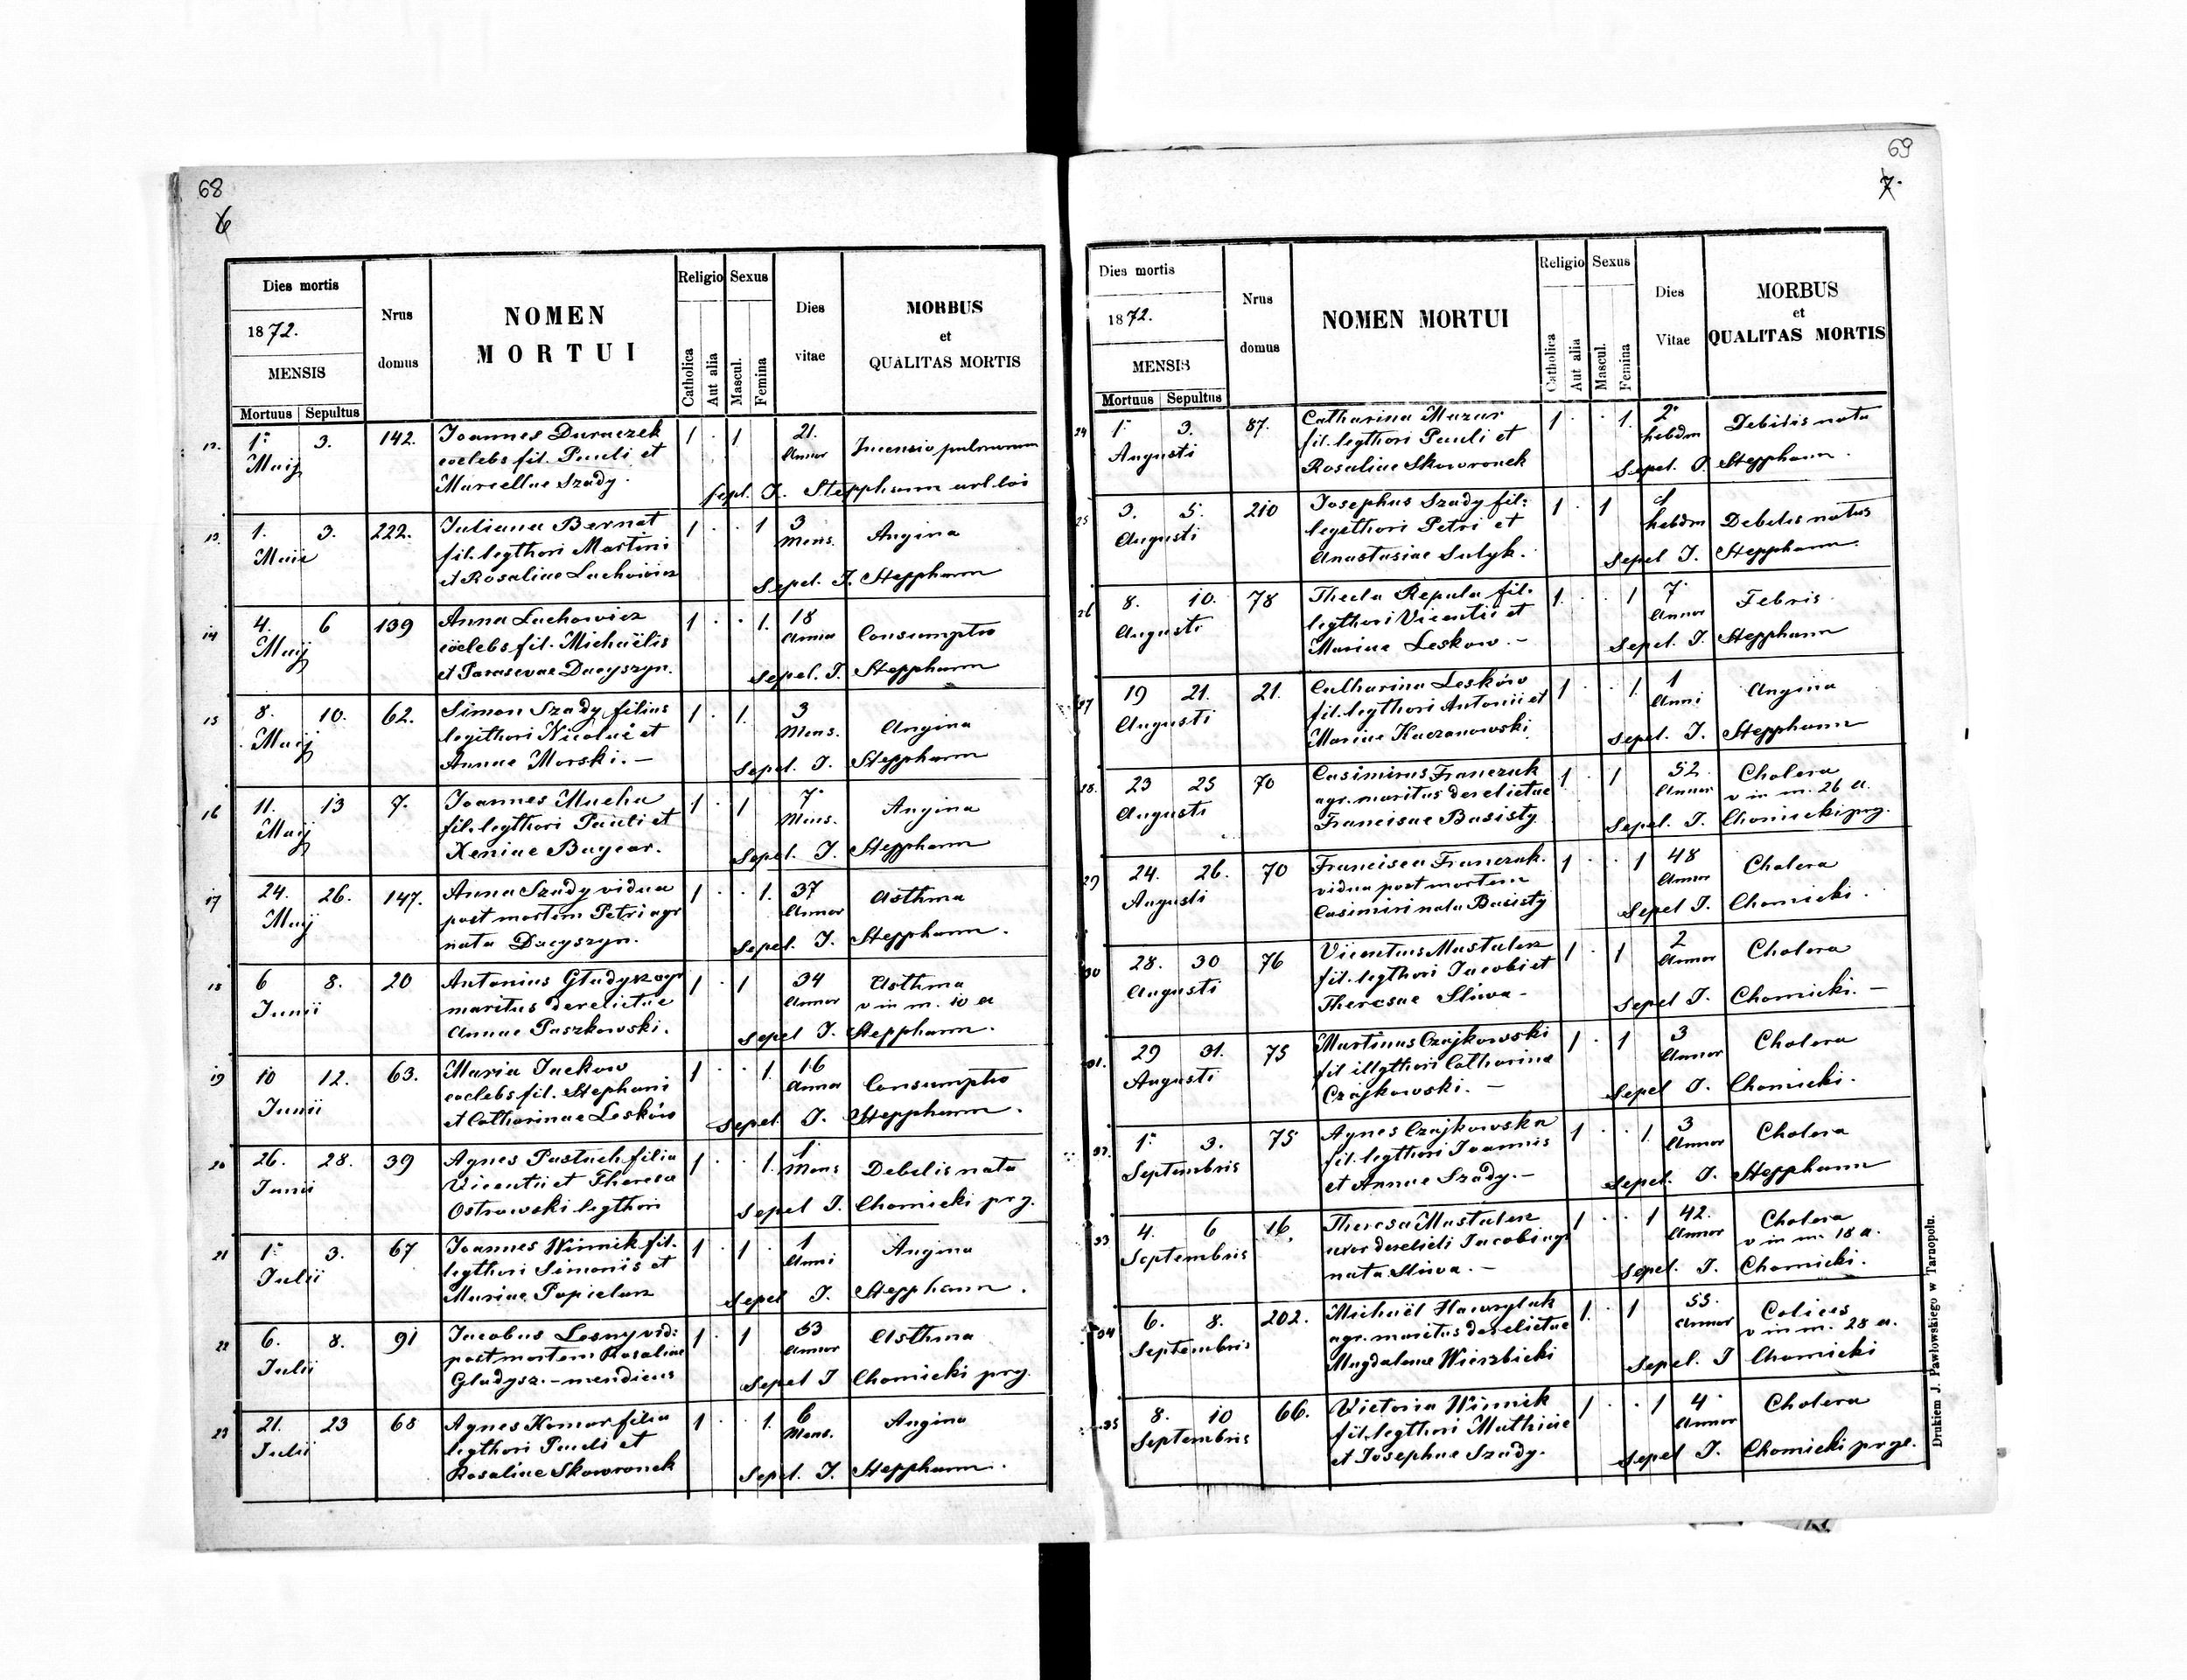 68
6
Dies mortis
1872.
MENSIS
Mortuus Sepultus
Nrus domus
NOMEN
MORTUI
Religio
Catholica
Aut alia
Sexus
Mascul.
Femina
Dies vitae
MORBUS
et
QUALITAS MORTIS
12. 1. 3. 142. Joannes Duraczek 1 . 1 21.
Maij coelebs fil. Pauli et Annor Incensio pulmonum
Marcellae Szady. sepl. J. Stepphann
13. 1. 3. 222. Juliana Bernat 1 . . 1 3 Angina
Maii fil. legthori Martini Mens.
et Rosaliae Lachowicz Sepel. J. Stepphann
14 4. 6 139 Anna Lachowicz 1 . . 1. 18
Maij coelebs fil. Michaëlis Annor Consumptio
et Parascvae Dacyszyn. Sepel. J. Stepphann
15 8. 10. 62. Simon Szady filius 1 . 1. 3
Maij legithori Nicolai et Mens. Angina
Annae Morski. — Sepel. J. Stepphann
16 11. 13 7. Joannes Mucha 1 . 1 7. Angina
Maij fil. legthori Pauli et Mens.
Xeniae Bugear. Sepel. J. Stepphann
17 24. 26. 147. Anna Szady vidua 1 . . 1. 37 Asthma
Maij post mortem Petri agr Annor
nata Dacyszyn. Sepel. J. Stepphann.
18 6 8. 20 Antonius Gładysz agr 1 . 1 34 Asthma
Junii maritus derelictae Annor v in m. 10 a
Annae Paszkowski. Sepel J. Stepphann.
19 10 12. 63. Maria Jackow 1 . . 1. 16
Junii coelebs fil. Stephani Annor Consumptio
et Catharinae Lesków Sepel. J. Stepphann.
20 26. 28. 39 Agnes Pastuch filia 1 . . 1. 1 Debelis nata
Junii Vicentii et Theresa Mens
Ostrowski legthori Sepel J. Chomicki prg.
21 1. 3. 67 Joannes Winnik fil. 1 . 1 . 1 Angina
Julii legthori Simonis et Anni
Mariae Popielarz Sepel J. Stepphann.
22 6. 8. 91 Jacobus Lesny vid: 1 . 1 53 Asthma
Julii post mortem Rosaliae Annor
Gladysz. — mendicus Sepel J Chomicki prg.
23 21. 23 68 Agnes Komar filia 1 . . 1. 6 Angina
Julii legthori Pauli et Mens.
Rosaliae Skowronek Sepel. J. Stepphann.
69
7.
Dies mortis
1872.
MENSIS
Mortuus Sepultus
Nrus domus
NOMEN MORTUI
Religio
Catholica
Aut alia
Sexus
Mascul.
Femina
Dies Vitae
MORBUS
et
QUALITAS MORTIS
24 1. 3. 87. Catharina Mazur 1 . . 1. 2 Debilis nata
Augusti fil. legthori Pauli et hebdm
Rosaliae Skowronek Sepel. J. Stepphann.
25 3. 5. 210 Josephus Szady fil: 1 . 1 hebdm Debelis natus
Augusti legethori Petri et
Anastasiae Sulyk. Sepel J. Stepphann.
26 8. 10. 78 Thecla Repula fil. 1. . . 1 7. Febris
Augusti legthori Vicentii et Annor
Mariae Leskow. — Sepel. J. Stepphann
27 19 21. 21. Catharina Lesków 1 . . 1. 1 Angina
Augusti fil. legthori Antonii et Anni
Mariae Kaczanowski. Sepel. J. Stepphann
28. 23 25 70 Casimirus Franczuk 1 . 1 52. Cholera
Augusti agr. maritus derelictae Annor v in m. 26 a.
Franciscae Basisty Sepel. J. Chomicki prg.
29 24. 26. 70 Francisca Franczuk. 1 . . 1 48 Cholera
Augusti vidua post mortem Annor
Casimiri nata Basisty Sepel J. Chomicki.
30 28. 30 76 Vicentius Mastalerz 1 . 1 2 Cholera
Augusti fil. legthori Jacobi et Annor
Theresae Sliwa — Sepel J. Chomicki. —
31. 29 31. 75 Martinus Czajkowski 1 . 1 3 Cholera
Augusti fil illgthori Catharina Annor
Czajkowski. — Sepel J. Chomicki.
32. 1. 3. 75 Agnes Czajkowska 1 . . 1. 3 Cholera
Septembris fil. legthori Joannis Annor
et Annae Szady. — Sepel. J. Stepphann
33 4. 6 16. Theresa Mastalerz 1 . . 1 42. Cholera
Septembris uxor derelicti Jacobi agr Annor v in m. 18 a.
nata Sliwa. — Sepel. J. Chomicki.
34 6. 8. 202. Michaël Hawryluk 1. . 1 55. Colices
Septembris agr. maritus derelictae Annor v in m. 28 a.
Magdalenae Wierzbicki Sepel. J Chomicki
35 8. 10 66. Victoria Winnik 1 . . 1 4 Cholera
Septembris fil. legthori Mathiae Annor
et Josephae Szady. Sepel J. Chomicki prge.
Drukiem J. Pawłowskiego w Tarnopolu.